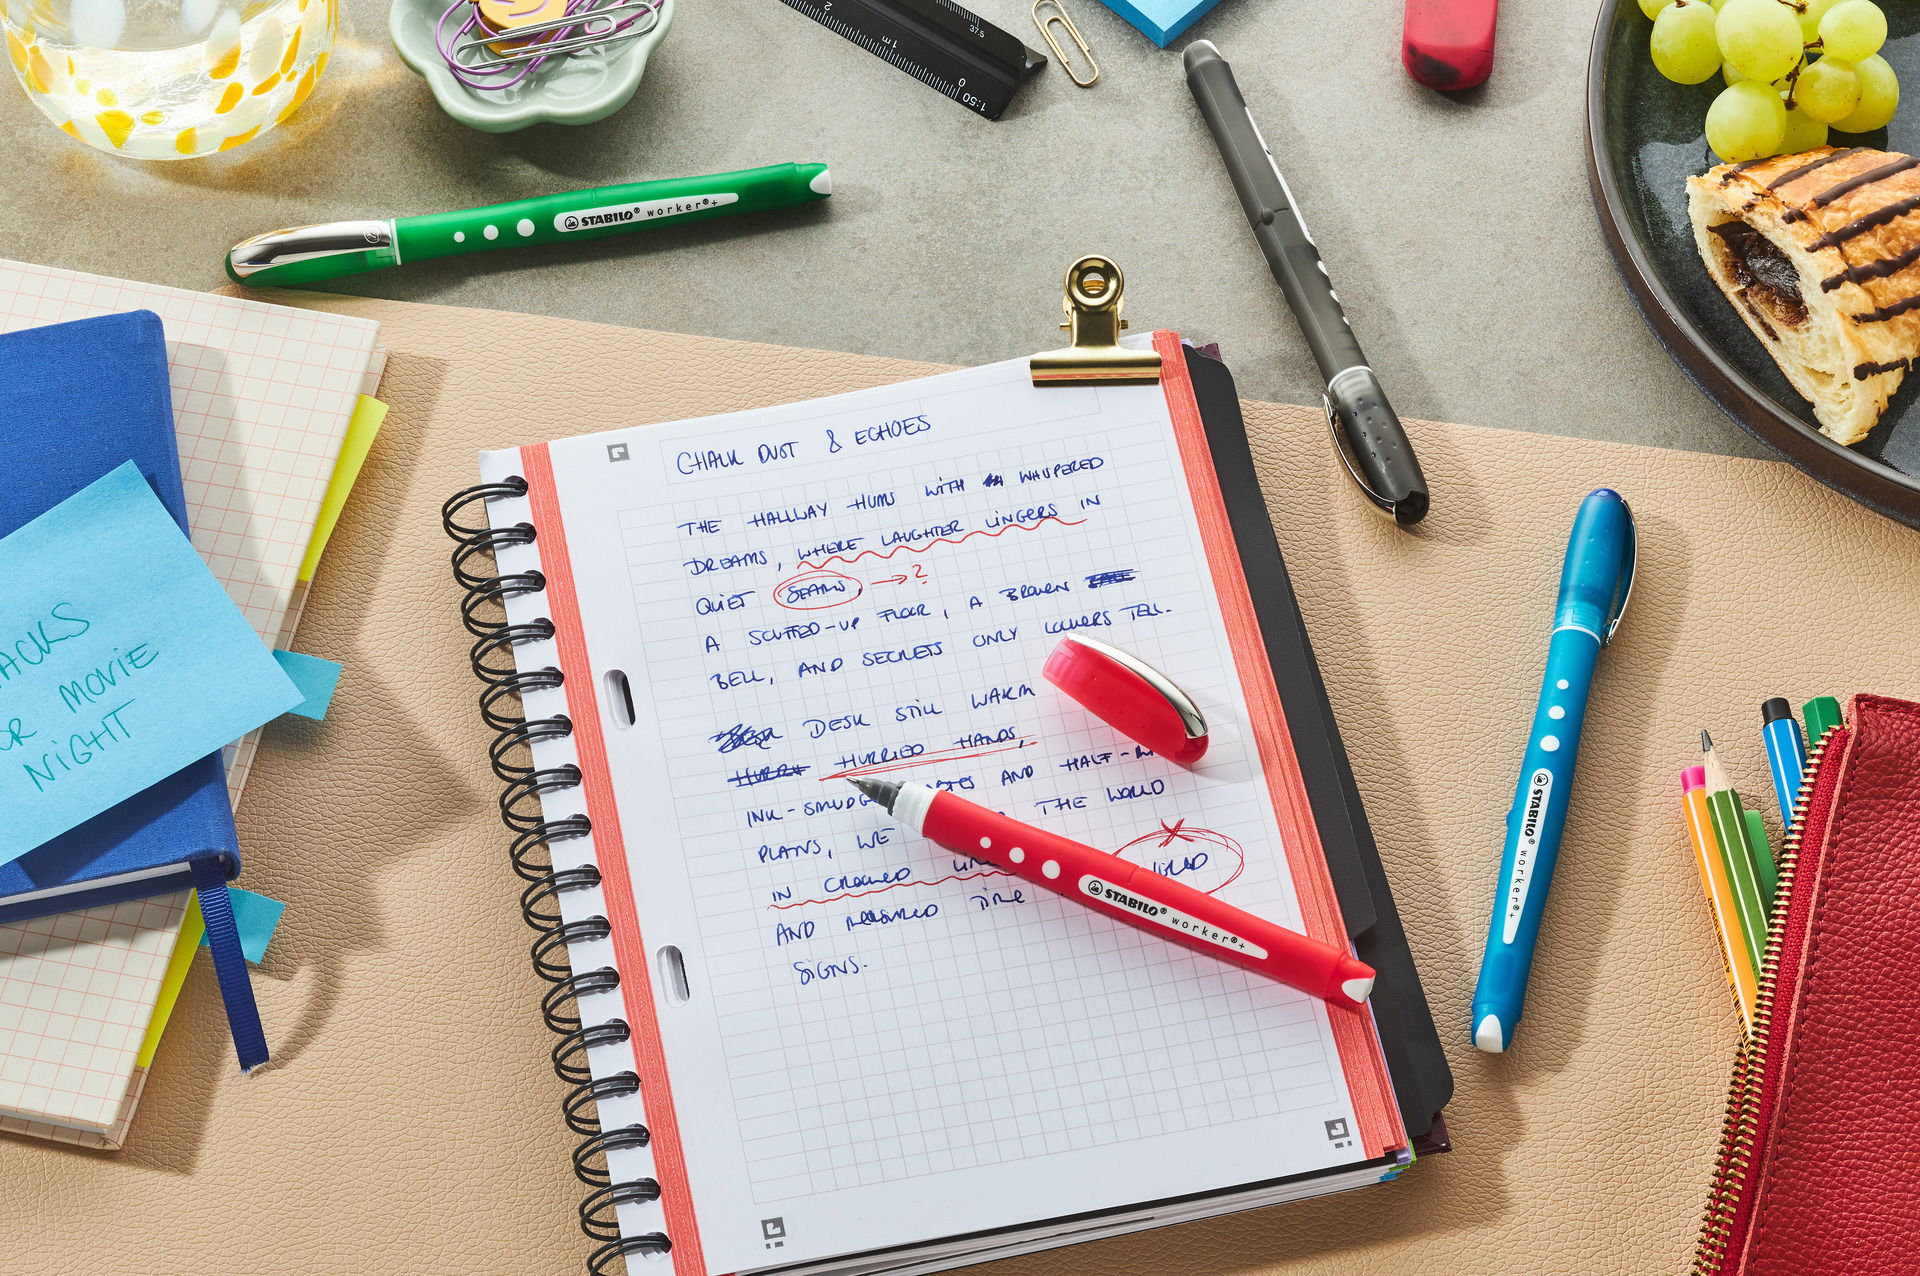 2
1
m
0
1:50
37.5
STABILO® worker®+
CHALK DUST & ECHOES
THE HALLWAY HUMS WITH WHISPERED
DREAMS, WHERE LAUGHTER LINGERS IN
QUIET SEAMS, →?
A SCUFFED-UP FLOOR, A BROKEN
BELL, AND SECRETS ONLY LOCKERS TELL.
DESK STILL WARM
HURRIED HANDS,
INK-SMUDG AND HALF-
PLANS, WE THE WORLD
IN CROOKED
AND TIME
SIGNS.
STABILO® worker®+
STABILO® worker®+
ACKS
OR MOVIE
NIGHT